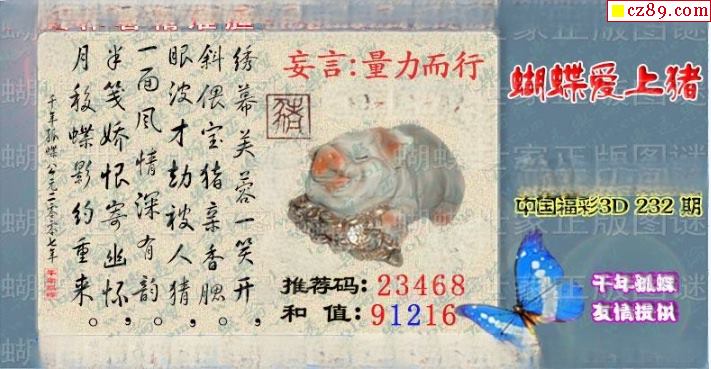 cz89.com
蝴蝶爱上猪
妄言:量力而行
猪
绣幕芙蓉一笑开
斜偎宝猪亲香腮
眼波才劫被人猜
一面风情深有韵
半笺娇恨寄幽怀
月移蝶影约重来
千年狐蝶 公元二零零七年
中国福彩3D 232 期
推荐码:23468
和 值:91216
千年狐蝶
友情提供